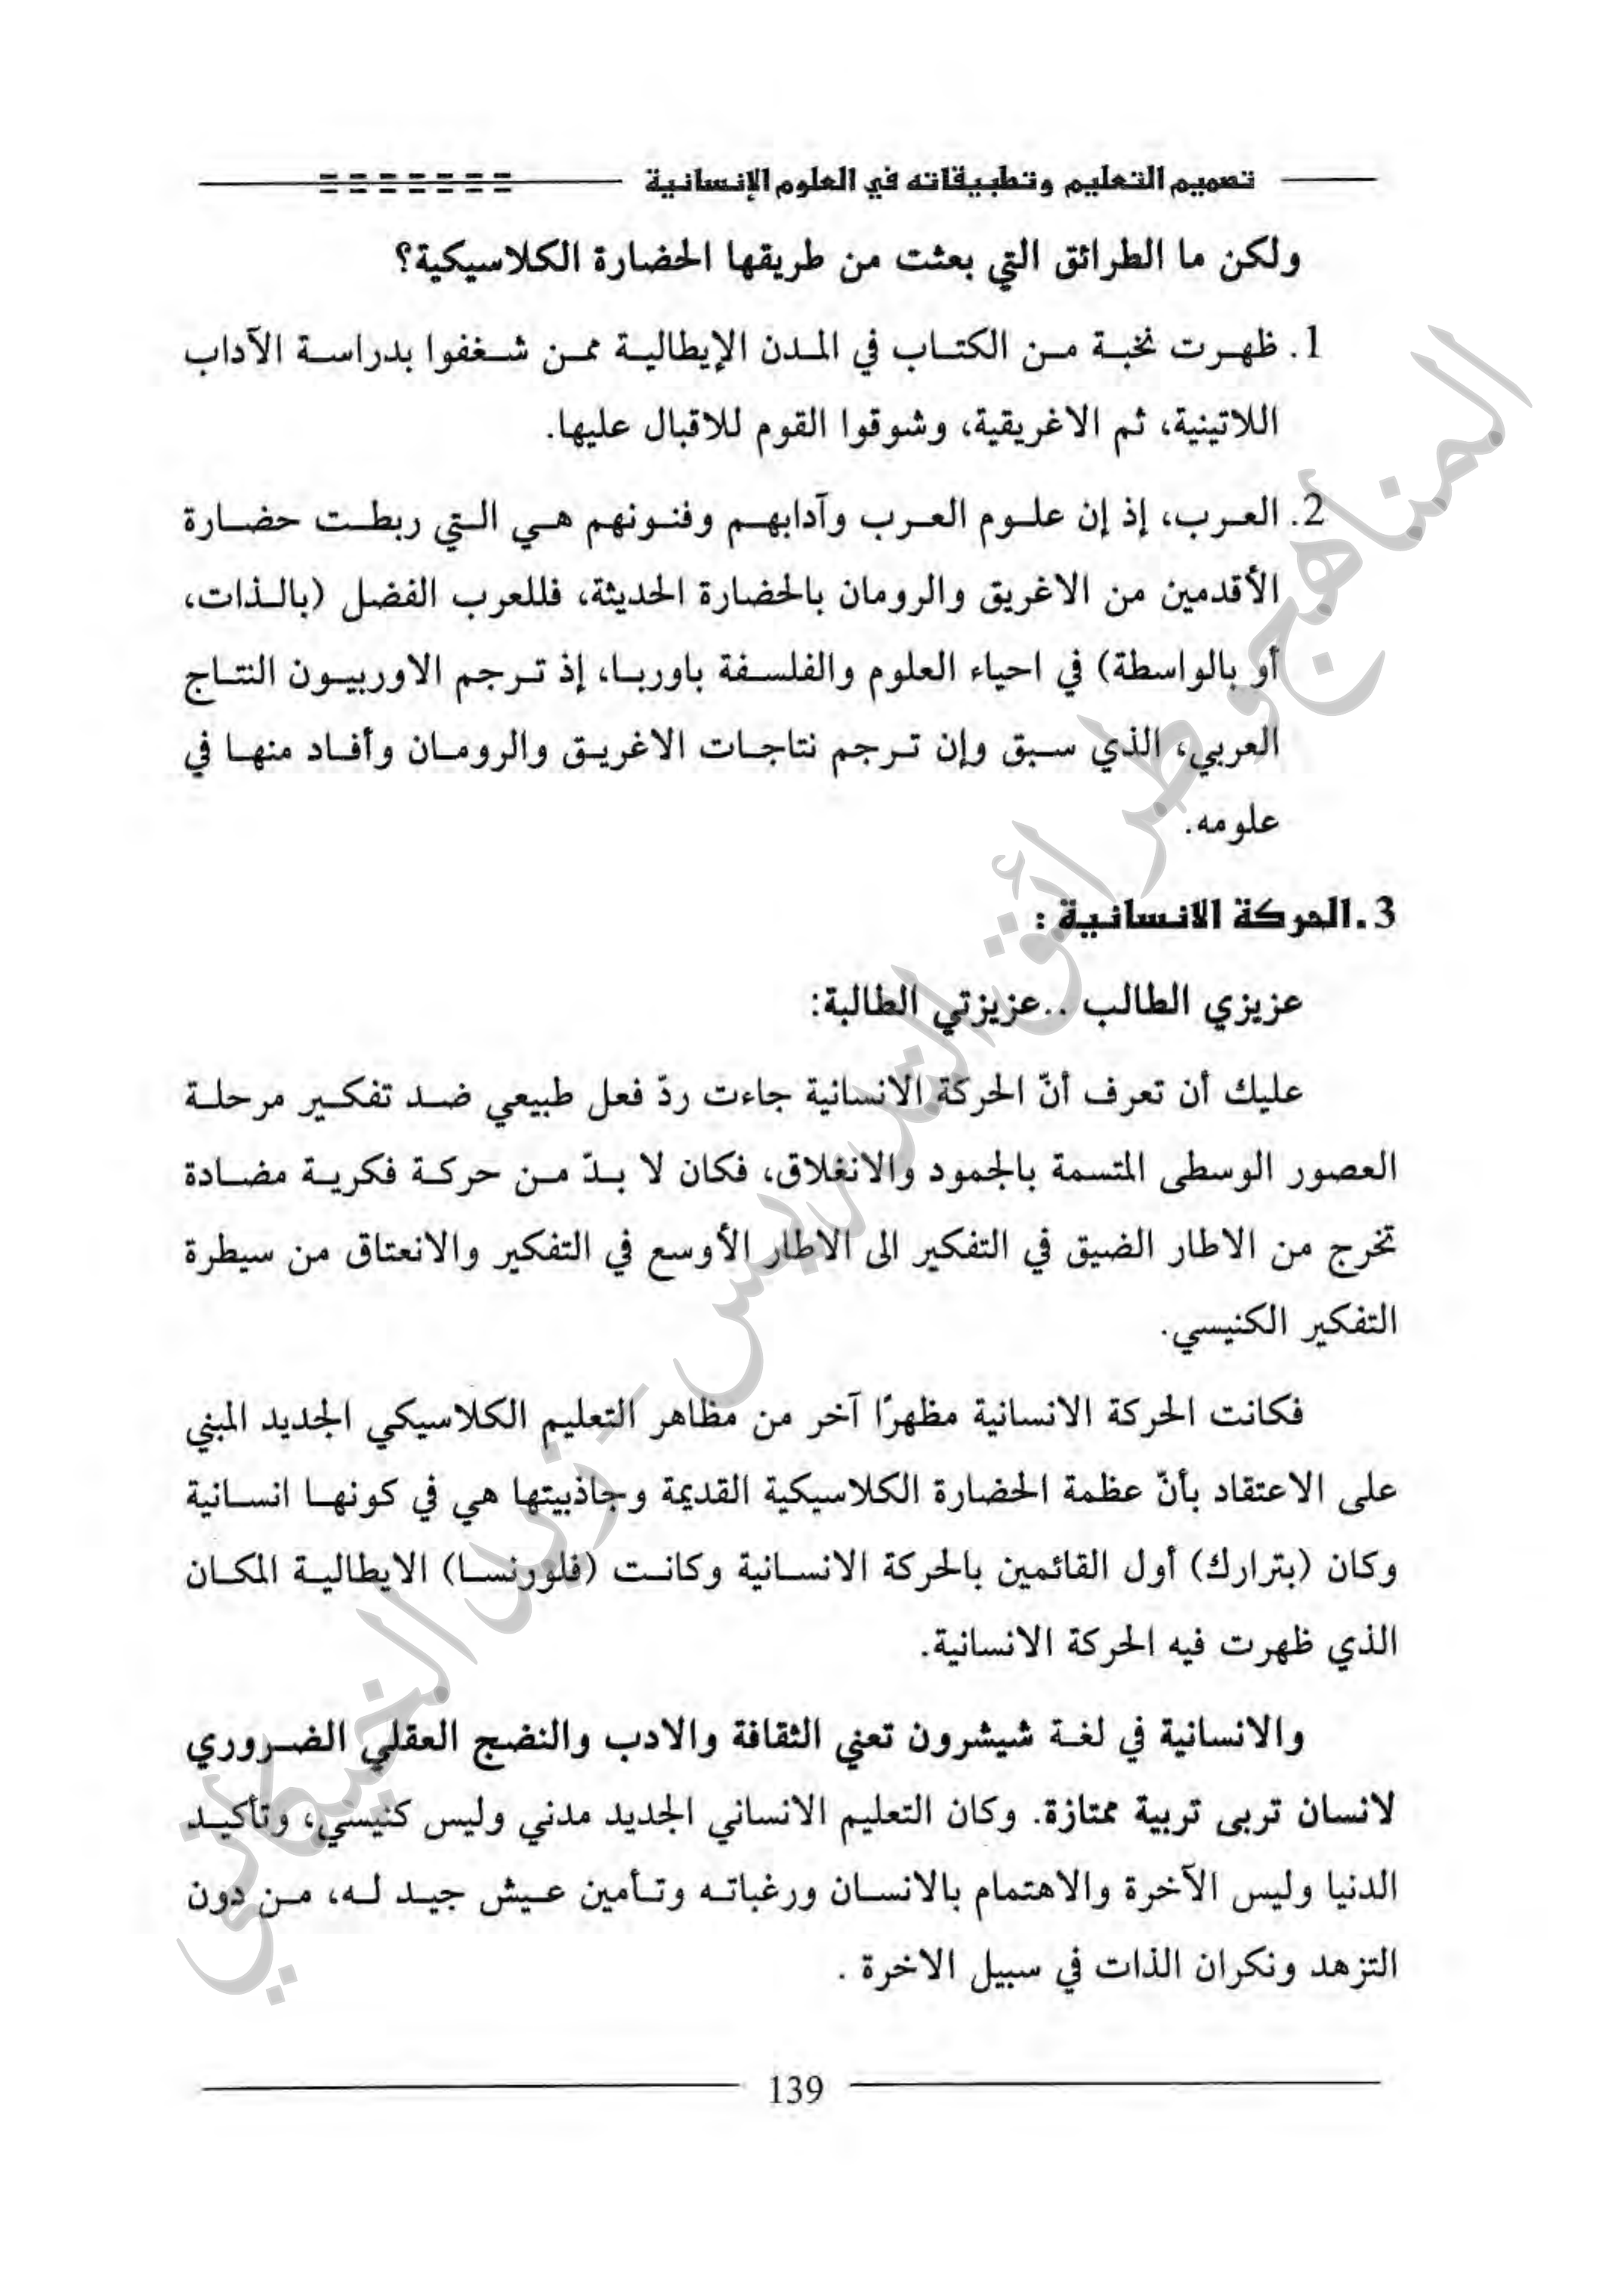 تصميم التعليم وتطبيقاته في العلوم الإنسانية
ولكن ما الطرائق التي بعثت من طريقها الحضارة الكلاسيكية؟
1. ظهرت نخبة من الكتاب في المدن الإيطالية ممن شغفوا بدراسة الآداب
اللاتينية، ثم الاغريقية، وشوقوا القوم للاقبال عليها.
2. العرب، إذ إن علوم العرب وآدابهم وفنونهم هي التي ربطت حضارة
الأقدمين من الاغريق والرومان بالحضارة الحديثة، فللعرب الفضل (بالذات،
أو بالواسطة) في احياء العلوم والفلسفة باوربا، إذ ترجم الاوربيون النتاج
العربي، الذي سبق وإن ترجم نتاجات الاغريق والرومان وأفاد منها في
علومه.
3. الحركة الانسانية :
عزيزي الطالب ..عزيزتي الطالبة:
عليك أن تعرف أنّ الحركة الانسانية جاءت ردّ فعل طبيعي ضد تفكير مرحلة
العصور الوسطى المتسمة بالجمود والانغلاق، فكان لا بدّ من حركة فكرية مضادة
تخرج من الاطار الضيق في التفكير الى الاطار الأوسع في التفكير والانعتاق من سيطرة
التفكير الكنيسي.
فكانت الحركة الانسانية مظهرًا آخر من مظاهر التعليم الكلاسيكي الجديد المبني
على الاعتقاد بأنّ عظمة الحضارة الكلاسيكية القديمة وجاذبيتها هي في كونها انسانية
وكان (بترارك) أول القائمين بالحركة الانسانية وكانت (فلورنسا) الايطالية المكان
الذي ظهرت فيه الحركة الانسانية.
والانسانية في لغة شيشرون تعني الثقافة والادب والنضج العقلي الضروري
لانسان تربى تربية ممتازة. وكان التعليم الانساني الجديد مدني وليس كنيسي، وتأكيد
الدنيا وليس الآخرة والاهتمام بالانسان ورغباته وتأمين عيش جيد له، من دون
التزهد ونكران الذات في سبيل الاخرة .
139
المناهج وطرائق التدريس - زين الخيكاني